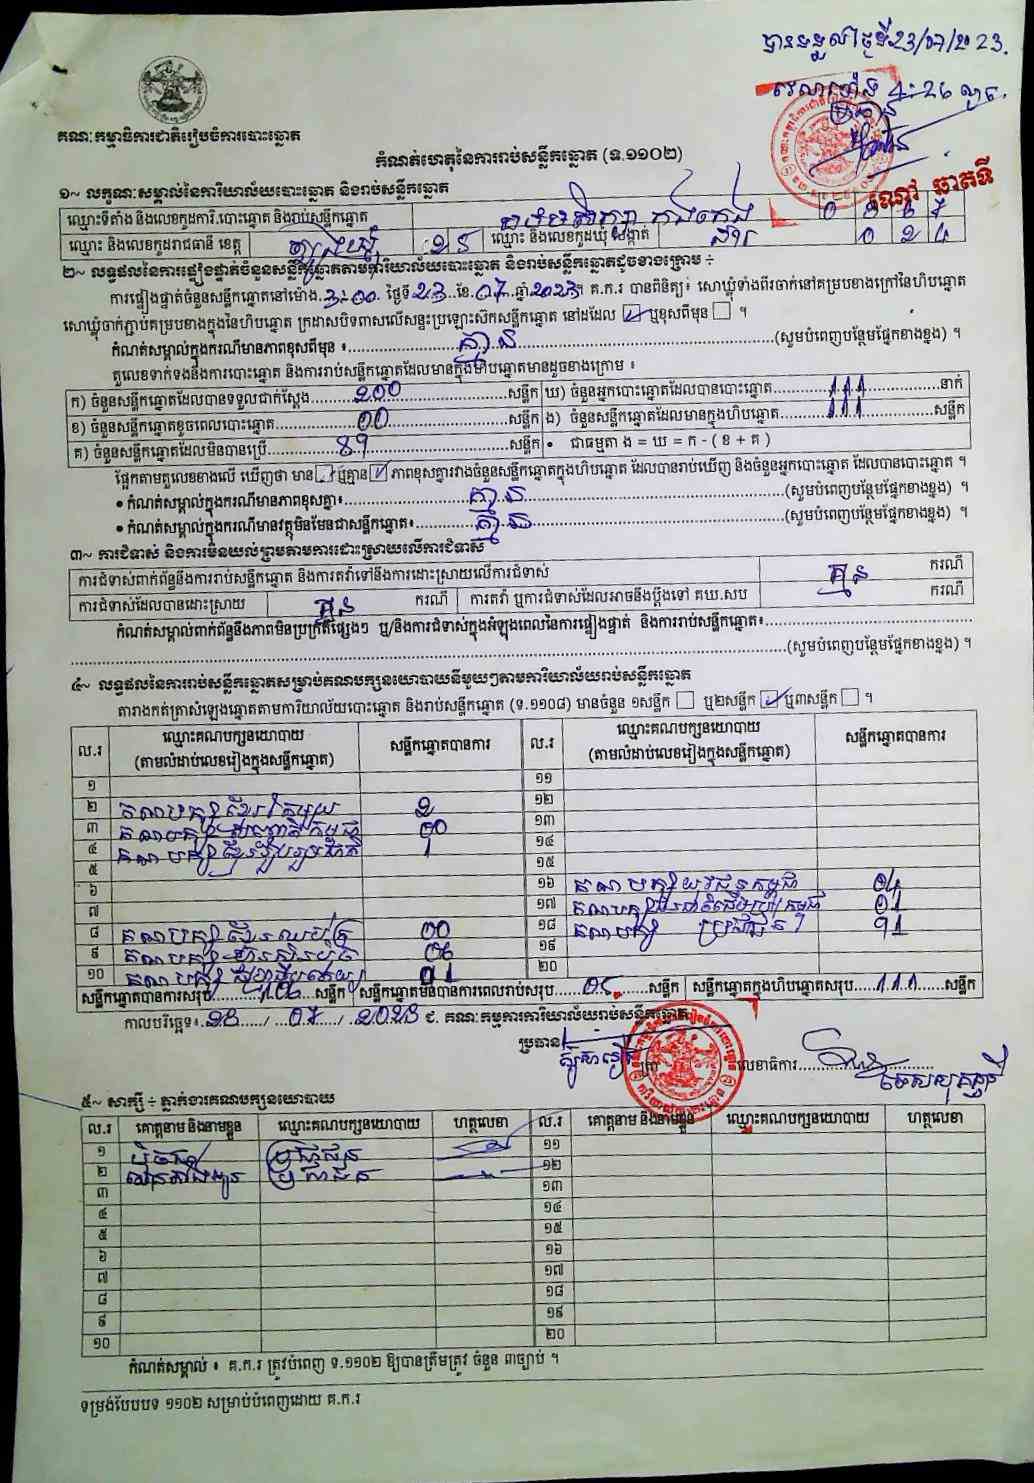 បានទទួល ថ្ងៃទី23/07/2023.
វេលាម៉ោង 4:26 ល្ងាច.
គណៈកម្មាធិការជាតិរៀបចំការបោះឆ្នោត
កំណត់ហេតុនៃការរាប់សន្លឹកឆ្នោត (ទ.១១០២)
១~ លក្ខណៈសម្គាល់នៃការិយាល័យបោះឆ្នោត និងរាប់សន្លឹកឆ្នោត
ឈ្មោះទីតាំង និងលេខកូដការិ.បោះឆ្នោត និងរាប់សន្លឹកឆ្នោត
ឈ្មោះ និងលេខកូដរាជធានី ខេត្ត ឈ្មោះ និងលេខកូដឃុំ សង្កាត់
២~ លទ្ធផលនៃការផ្ទៀងផ្ទាត់ចំនួនសន្លឹកឆ្នោតតាមការិយាល័យបោះឆ្នោត និងរាប់សន្លឹកឆ្នោតដូចខាងក្រោម ÷
ការផ្ទៀងផ្ទាត់ចំនួនសន្លឹកឆ្នោតនៅម៉ោង.3:00. ថ្ងៃទី 23..ខែ.07..ឆ្នាំ 2023។ គ.ក.រ បានពិនិត្យ៖ សោឃ្លុំទាំងពីរចាក់នៅគម្របខាងក្រៅនៃហិបឆ្នោត
សោឃ្លុំចាក់ភ្ជាប់គម្របខាងក្នុងនៃហិបឆ្នោត ក្រដាសបិទពាសលើសន្ទះប្រឡោះស៊កសន្លឹកឆ្នោត នៅដដែល ☑ ឬខុសពីមុន ☐ ។
កំណត់សម្គាល់ក្នុងករណីមានភាពខុសពីមុន ៖ គ្មាន (សូមបំពេញបន្ថែមផ្នែកខាងខ្នង) ។
តួលេខទាក់ទងនឹងការបោះឆ្នោត និងការរាប់សន្លឹកឆ្នោតដែលមានក្នុងហិបឆ្នោតមានដូចខាងក្រោម ៖
ក) ចំនួនសន្លឹកឆ្នោតដែលបានទទួលជាក់ស្តែង 200 សន្លឹក ឃ) ចំនួនអ្នកបោះឆ្នោតដែលបានបោះឆ្នោត 111 នាក់
ខ) ចំនួនសន្លឹកឆ្នោតខូចពេលបោះឆ្នោត 00 សន្លឹក ង) ចំនួនសន្លឹកឆ្នោតដែលមានក្នុងហិបឆ្នោត 111 សន្លឹក
គ) ចំនួនសន្លឹកឆ្នោតដែលមិនបានប្រើ 89 សន្លឹក • ជាធម្មតា ង = ឃ = ក - ( ខ + គ )
ផ្អែកតាមតួលេខខាងលើ ឃើញថា មាន ☐ ឬគ្មាន ☑ ភាពខុសគ្នារវាងចំនួនសន្លឹកឆ្នោតក្នុងហិបឆ្នោត ដែលបានរាប់ឃើញ និងចំនួនអ្នកបោះឆ្នោត ដែលបានបោះឆ្នោត ។
• កំណត់សម្គាល់ក្នុងករណីមានភាពខុសគ្នា៖ គ្មាន (សូមបំពេញបន្ថែមផ្នែកខាងខ្នង) ។
• កំណត់សម្គាល់ក្នុងករណីមានវត្ថុមិនមែនជាសន្លឹកឆ្នោត៖ គ្មាន (សូមបំពេញបន្ថែមផ្នែកខាងខ្នង) ។
៣~ ការជំទាស់ និងការមិនយល់ព្រមតាមការដោះស្រាយលើការជំទាស់
ការជំទាស់ពាក់ព័ន្ធនឹងការរាប់សន្លឹកឆ្នោត និងការតវ៉ាទៅនឹងការដោះស្រាយលើការជំទាស់ គ្មាន ករណី
ការជំទាស់ដែលបានដោះស្រាយ គ្មាន ករណី ការតវ៉ា ឬការជំទាស់ដែលអាចនឹងប្តឹងទៅ គឃ.សប គ្មាន ករណី
កំណត់សម្គាល់ពាក់ព័ន្ធនឹងភាពមិនប្រក្រតីផ្សេងៗ ឬ/និងការជំទាស់ក្នុងអំឡុងពេលនៃការផ្ទៀងផ្ទាត់ និងការរាប់សន្លឹកឆ្នោត៖
(សូមបំពេញបន្ថែមផ្នែកខាងខ្នង) ។
៤~ លទ្ធផលនៃការរាប់សន្លឹកឆ្នោតសម្រាប់គណបក្សនយោបាយនីមួយៗតាមការិយាល័យរាប់សន្លឹកឆ្នោត
តារាងកត់ត្រាសំឡេងឆ្នោតតាមការិយាល័យបោះឆ្នោត និងរាប់សន្លឹកឆ្នោត (ទ.១១០៨) មានចំនួន ១សន្លឹក ☐ ឬ២សន្លឹក ☑ ឬ៣សន្លឹក ☐ ។
ល.រ ឈ្មោះគណបក្សនយោបាយ (តាមលំដាប់លេខរៀងក្នុងសន្លឹកឆ្នោត) សន្លឹកឆ្នោតបានការ ល.រ ឈ្មោះគណបក្សនយោបាយ (តាមលំដាប់លេខរៀងក្នុងសន្លឹកឆ្នោត) សន្លឹកឆ្នោតបានការ
១ ១១
២ គណបក្ស 2 ១២
៣ គណបក្ស 00 ១៣
៤ គណបក្ស 1 ១៤
៥ ១៥
៦ ១៦ គណបក្ស 04
៧ ១៧ គណបក្ស 01
៨ គណបក្ស 00 ១៨ គណបក្ស ប្រជាជន 91
៩ គណបក្ស 06 ១៩
១០ គណបក្ស 01 ២០
សន្លឹកឆ្នោតបានការសរុប 106 សន្លឹក សន្លឹកឆ្នោតមិនបានការពេលរាប់សរុប 05 សន្លឹក សន្លឹកឆ្នោតក្នុងហិបឆ្នោតសរុប 111 សន្លឹក
កាលបរិច្ឆេទ៖ 23 / 07 / 2023 ៩. គណៈកម្មការការិយាល័យរាប់សន្លឹកឆ្នោត
ប្រធាន លេខាធិការ
៥~ សាក្សី ÷ ភ្នាក់ងារគណបក្សនយោបាយ
ល.រ គោត្តនាម និងនាមខ្លួន ឈ្មោះគណបក្សនយោបាយ ហត្ថលេខា ល.រ គោត្តនាម និងនាមខ្លួន ឈ្មោះគណបក្សនយោបាយ ហត្ថលេខា
១ ប្រជាជន ១១
២ ប្រជាជន ១២
៣ ១៣
៤ ១៤
៥ ១៥
៦ ១៦
៧ ១៧
៨ ១៨
៩ ១៩
១០ ២០
កំណត់សម្គាល់ ៖ គ.ក.រ ត្រូវបំពេញ ទ.១១០២ ឱ្យបានត្រឹមត្រូវ ចំនួន ៣ច្បាប់ ។
ទម្រង់បែបបទ ១១០២ សម្រាប់បំពេញដោយ គ.ក.រ